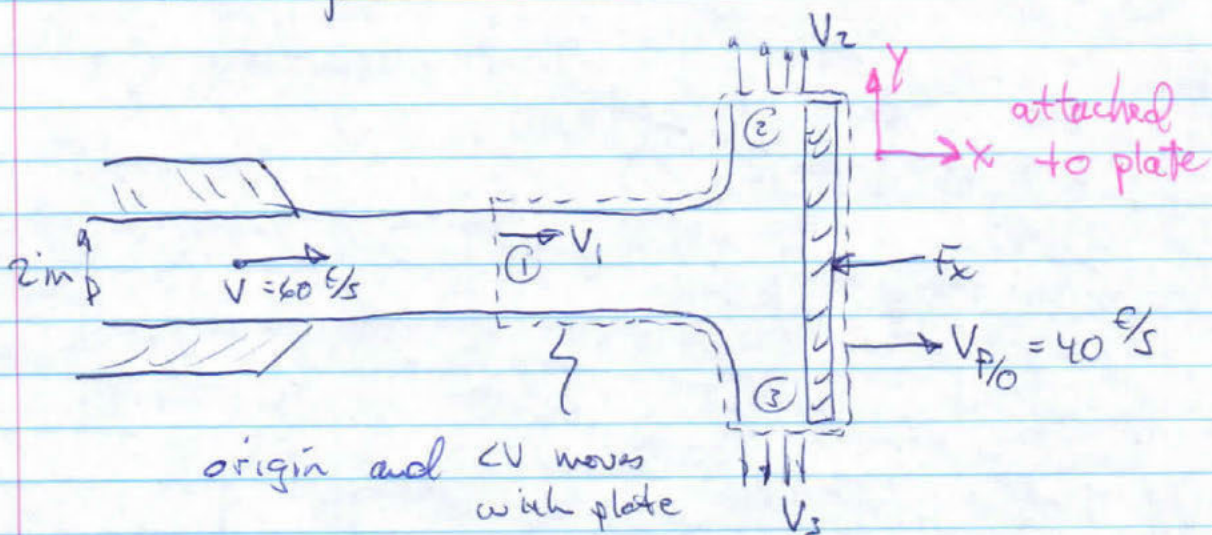 V2
Y
attached
②
x to plate
① V1
2in
V = 60 f/s
Fx
VP/O = 40 f/s
③
origin and CV moves
with plate
V3